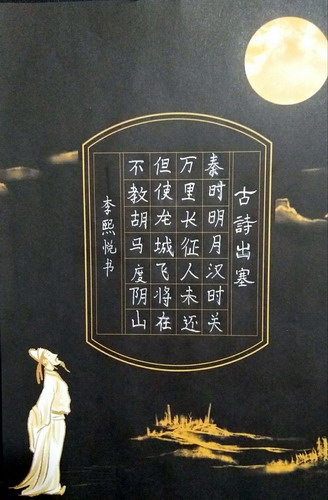 古詩出塞
秦时明月汉时关
万里长征人未还
但使龙城飞将在
不教胡马度阴山
李熙悦书